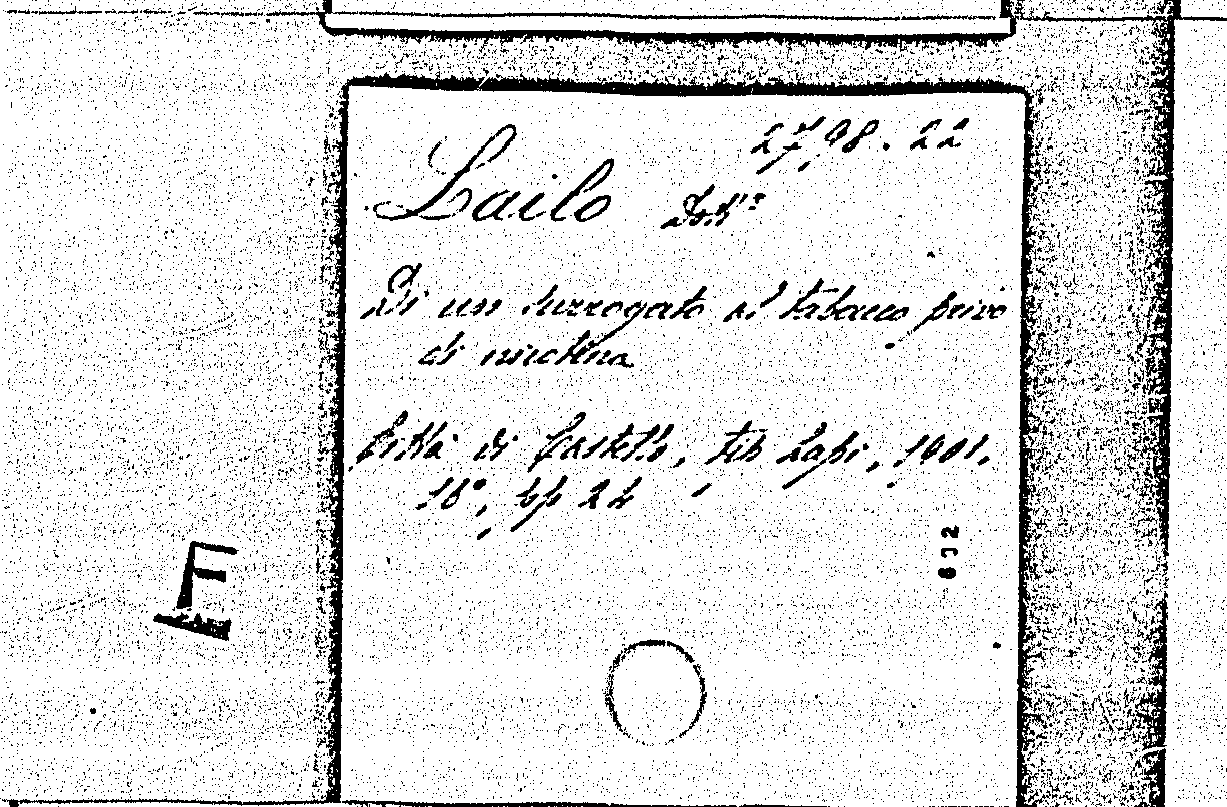 2798.22
Lailo Dott.
Di un surrogato al tabacco privo
di nicotina
Città di Castello, tip Lapi, 1901.
18°, pp 24
602
F